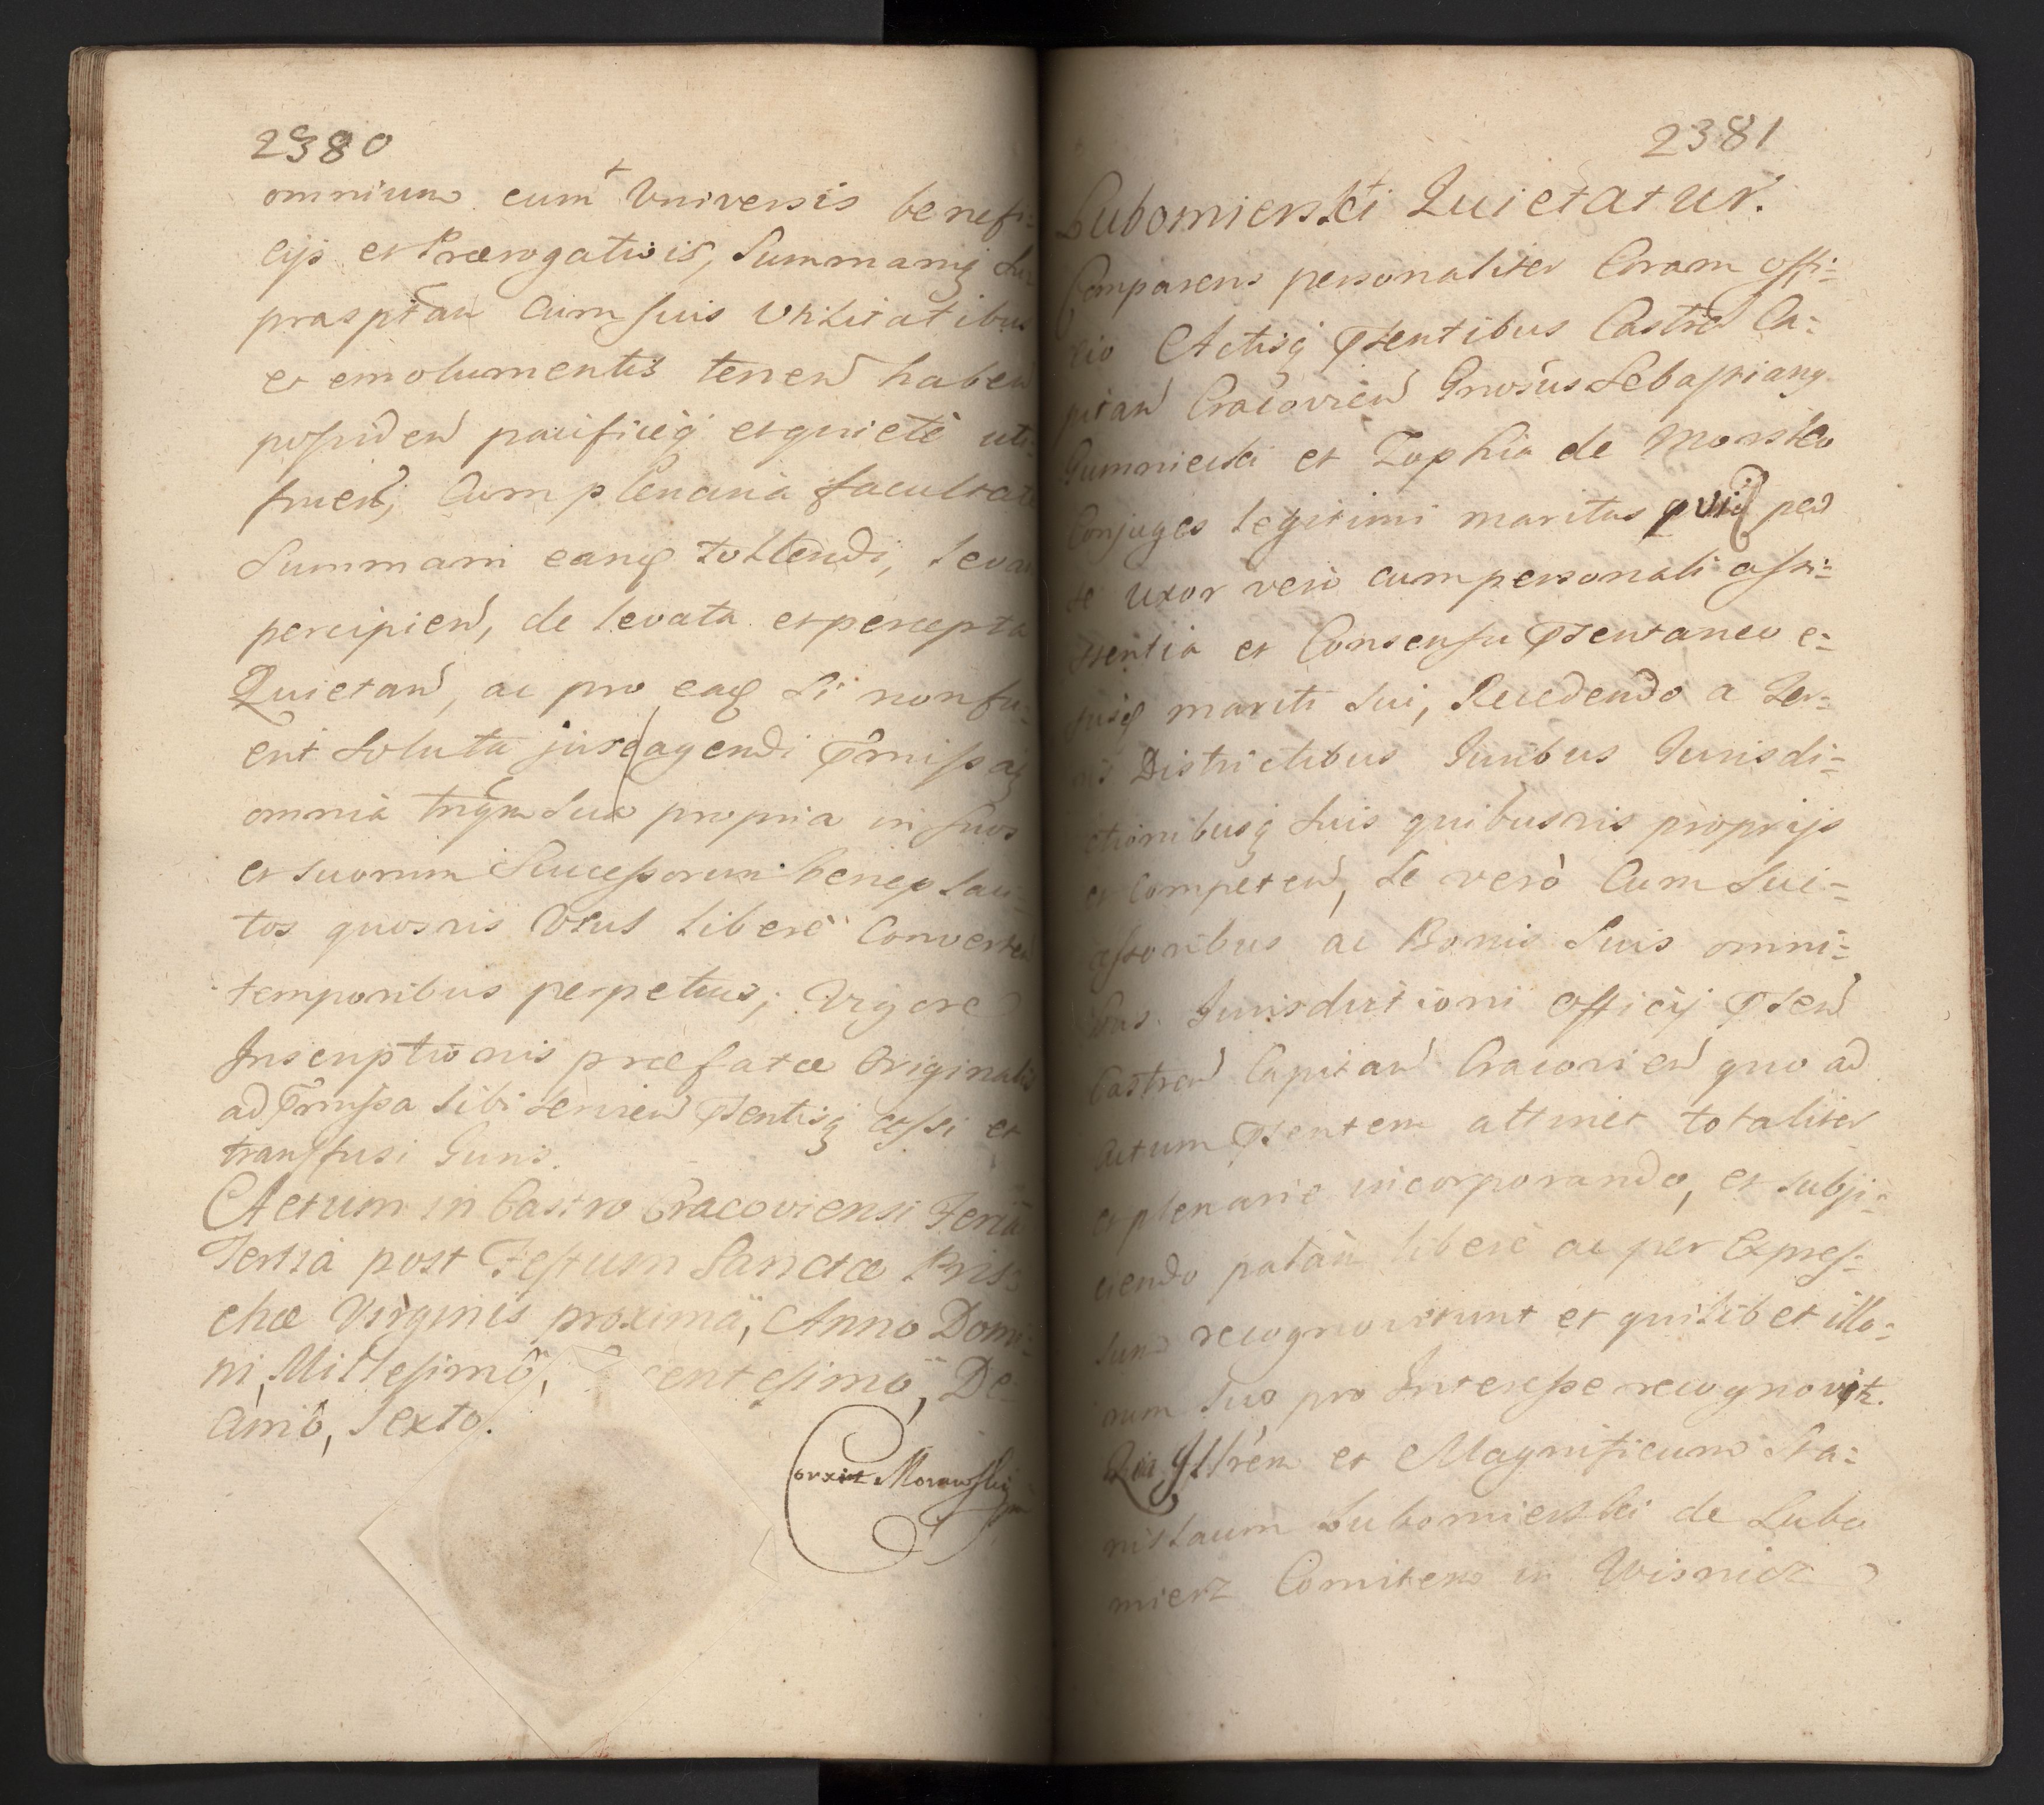 2380
omnium cum Universis benefi=
cijs et Prærogativis, Summamq
præsptam Cum suis Utilitatibus
et emolumentis tenen haben
possiden pacificeq et quietè uti=
fruen, Cum plenaria facultate
Summam eamq tollendi, levan
percipien, de levata et percepta
Quietan, ac pro eaq si non fu=
erit soluta jure agendi pmissaq
omnia tnqm sua propria in suos
et suorum Successorum beneplaci=
tos quosvis Usus liberè Converten
temporibus perpetuis; Vigore
Inscriptionis præfatæ Originalis
ad pmissa sibi servien psentisq cessi et
transfusi Juris.
Actum in Castro Cracoviensi Feria
Tertia post Festum Sanctæ Pris=
chæ Virginis proximâ, Anno Domi=
ni, Millesimô, centesimô, De=
cimô, Sexto.
Corrxit Morawski
2381
Lubomierski Quietatur.
Comparens personaliter Coram offi=
cio Actisq psentibus Castren Ca=
pitan Cracovien Gnosus Sebastianq
Gumnieski et Zophia de Morsko
Conjuges legitimi maritus quid per
se uxor verò cum personali assi=
stentia et Consensu psentaneo e=
jusq mariti sui, Recedendo a Ter=
ris Districtibus Juribus Jurisdi=
ctionibusq suis quibusvis proprijs
et Competen, se verò Cum Suc=
cessoribus ac Bonis Suis omni=
bus Jurisdictioni Officij psen
Castren Capitan Cracovien quo ad
Actum psentem attinet totaliter
et plenarie incorporando, et subji=
ciendo palam liberè ac per Expres=
sum recognoverunt et quilibet illo=
rum suo pro Interesse recognovit.
Quia Illrem et Magnificum Sta=
nislaum Lubomierski de Lubo
mierz Comitem in Wisnicz